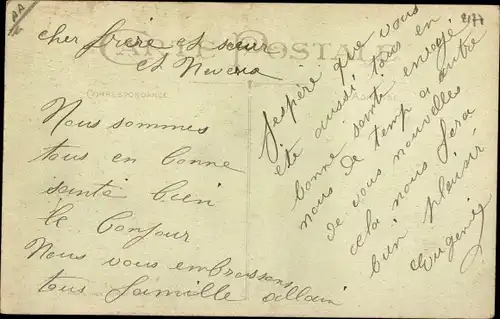 AA
CARTE POSTALE
CORRESPONDANCE
cher frere et sœur
et Neveu
Nous sommes
tous en bonne
santé bien
le bonjour
Nous vous embrassons
tous famille allain
J'espère que vous
ete aussi tous en
bonne santé envoyé
nous de temp a autre
de vous nouvelles
cela nous fera
bien plaisir
Eugenie